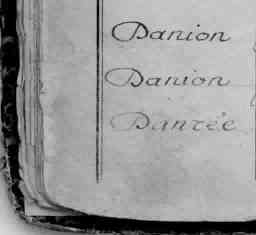 Danion
Danion
Dantée